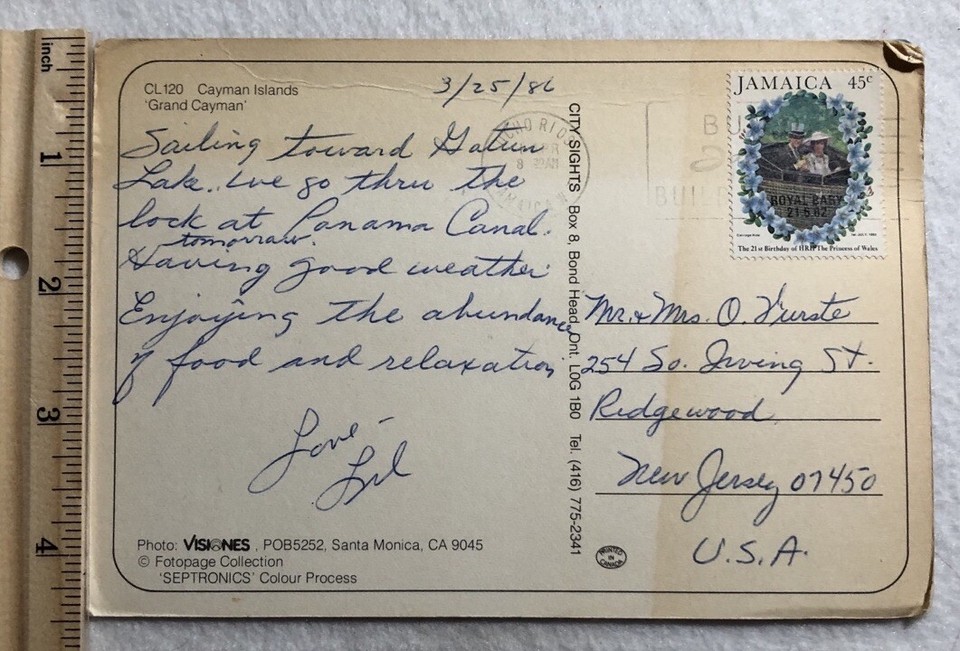 inch
1
2
3
4
CL120 Cayman Islands
'Grand Cayman'
3/25/86
Sailing toward Gatun
Lake. We go thru the
lock at Panama Canal.
tomorrow.
Having good weather
Enjoying the abundance
of food and relaxation
Love -
Lil
Photo: VISIONES, POB5252, Santa Monica, CA 9045
© Fotopage Collection
'SEPTRONICS' Colour Process
CITY SIGHTS Box 8, Bond Head, Ont. L0G 1B0 Tel. (416) 775-2341
OCHO RIOS
8 AM
JAMAICA
BU
BUILD
JAMAICA 45c
ROYAL BABY
21.6.82
The 21st Birthday of HRH The Princess of Wales
Mr. & Mrs. O. Furste
254 So. Irving St.
Ridgewood
New Jersey 07450
U.S.A.
PRINTED
IN
CANADA